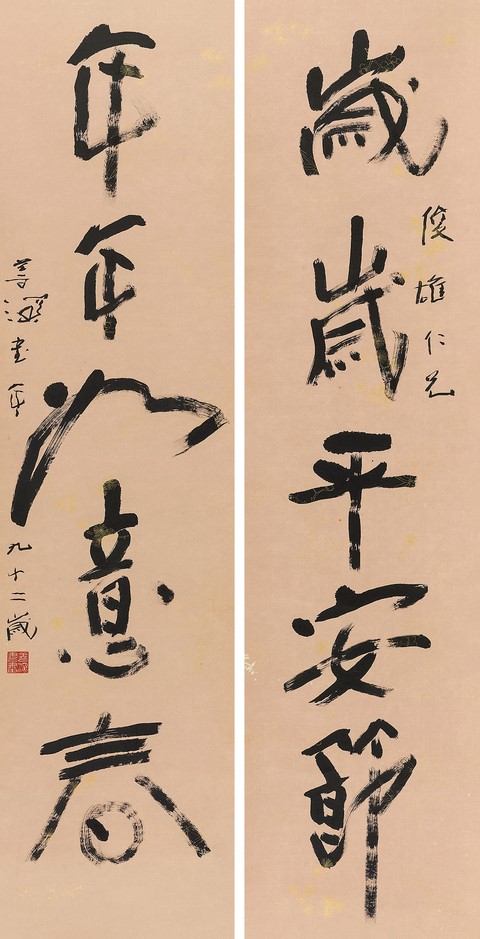 歲歲平安節
俊雄仁兄
年年如意春
書年九十二歲